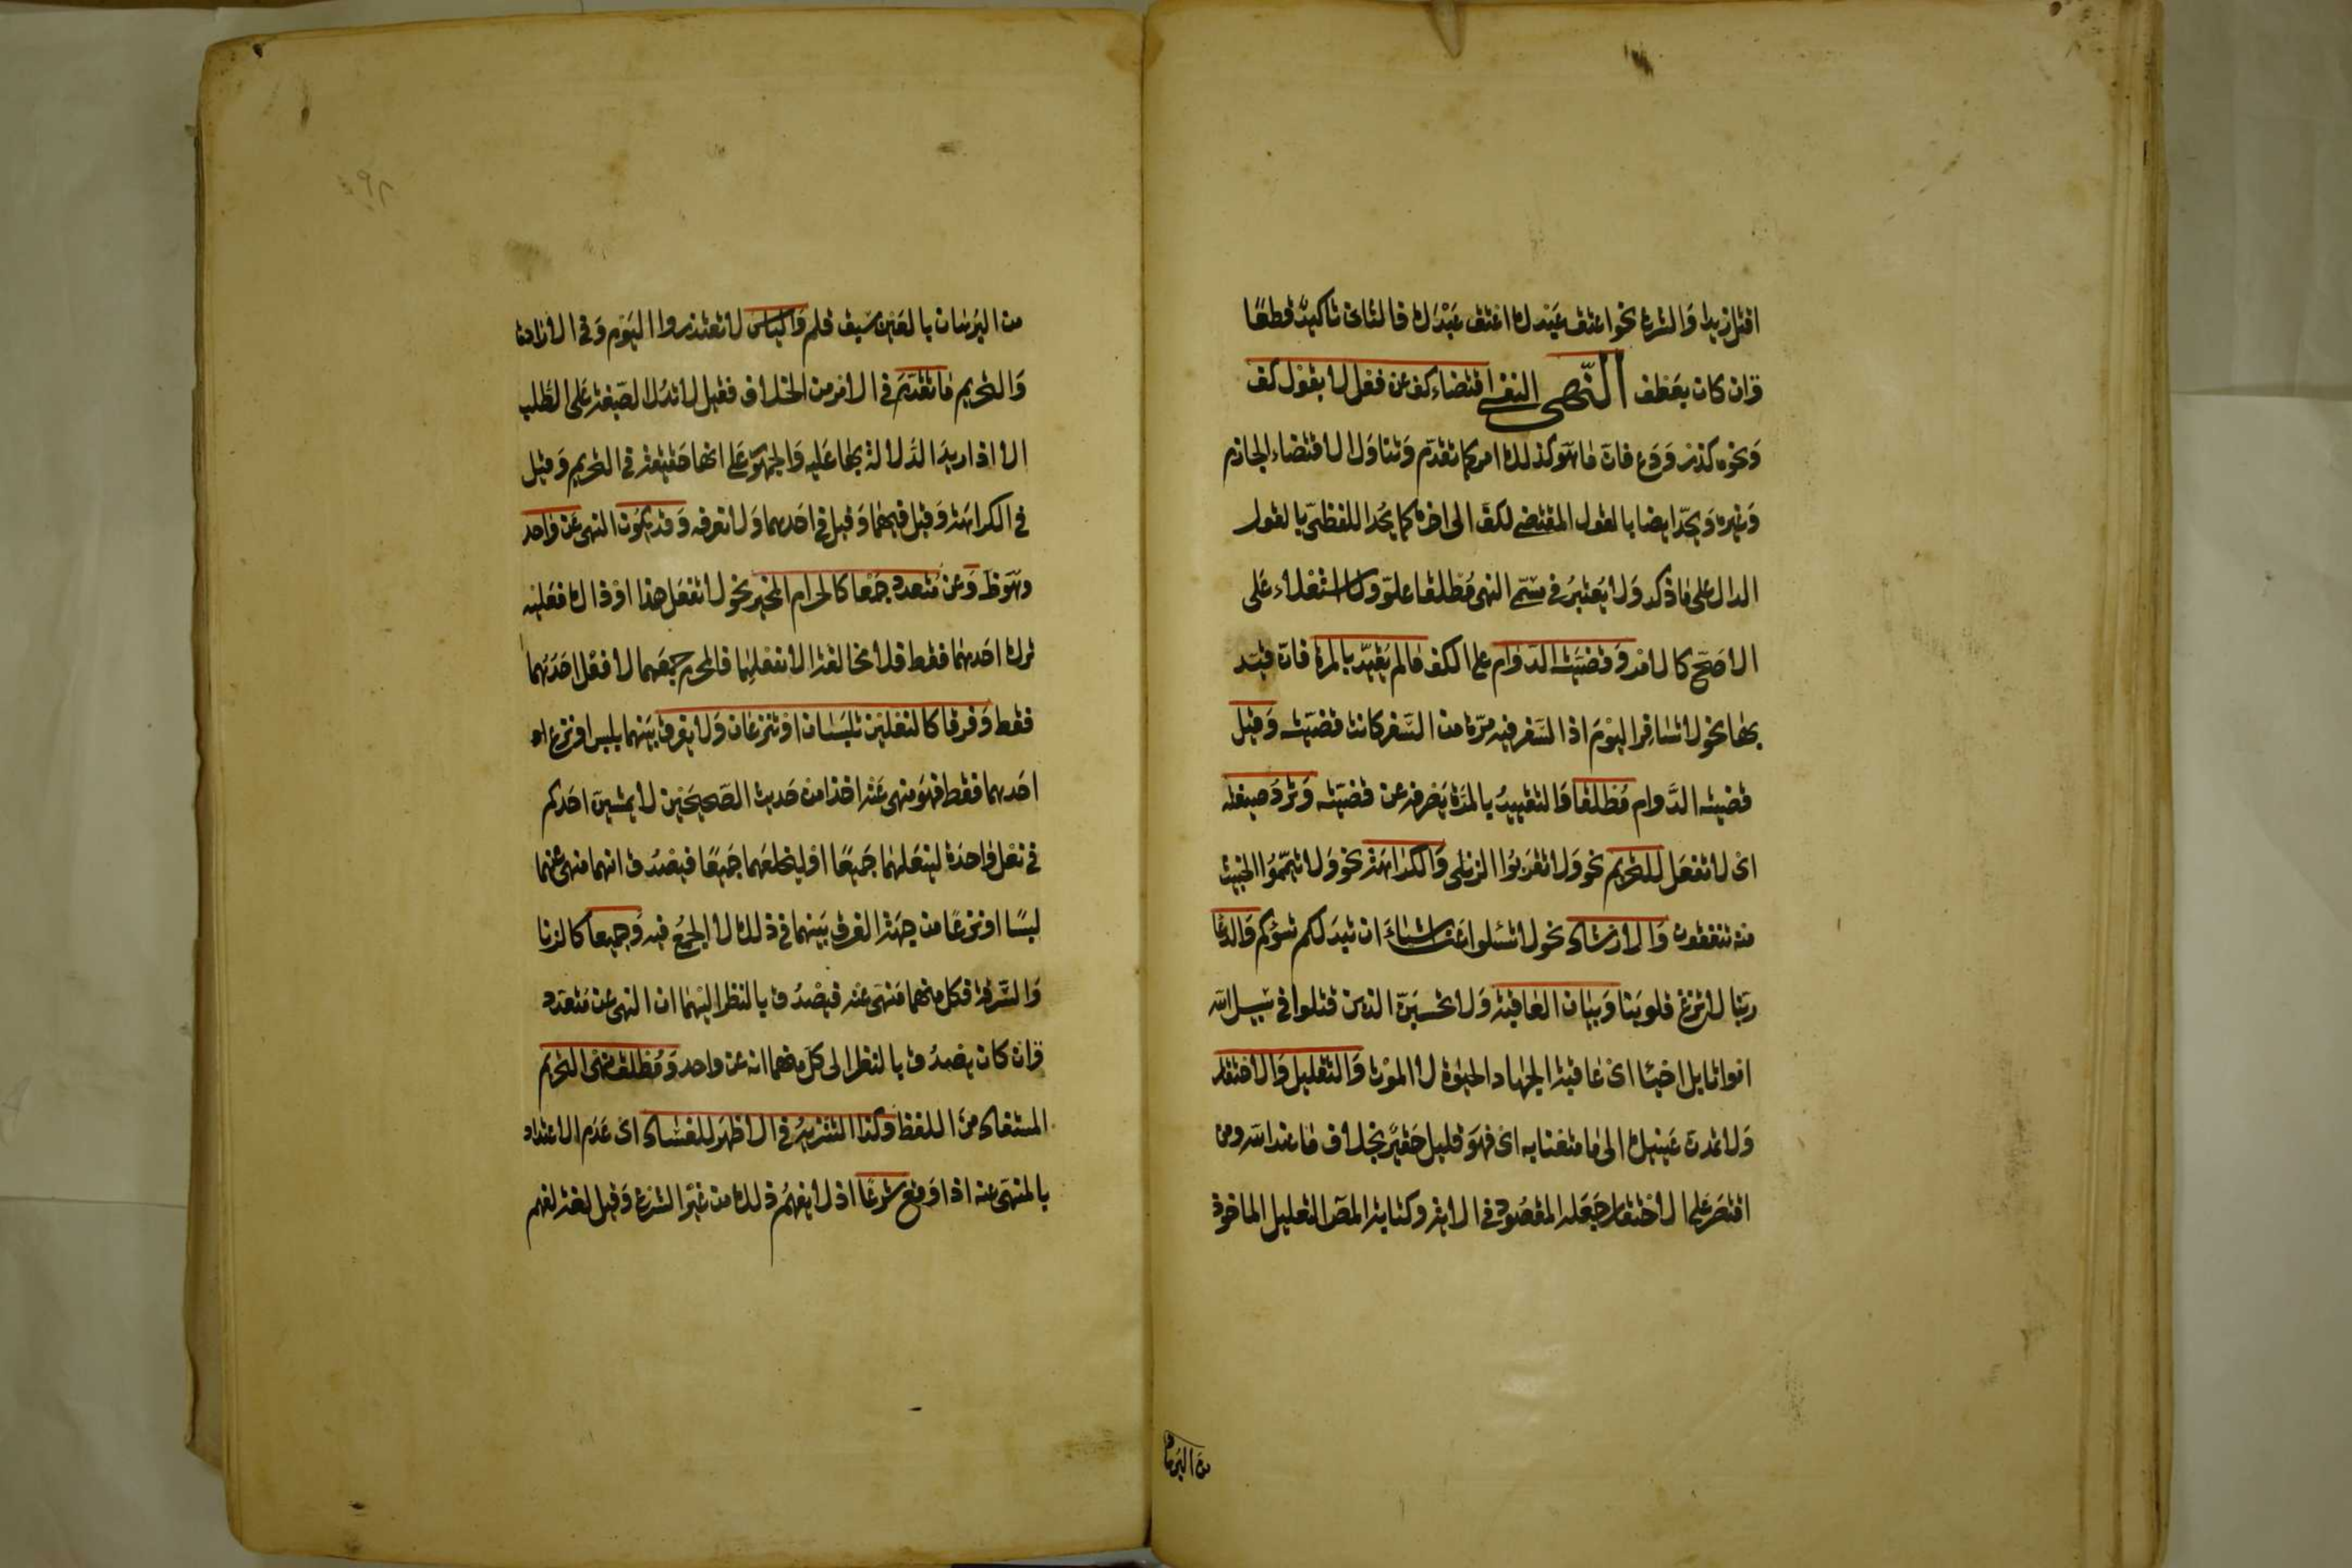 اقتل زيدا والشرع نحو اعتق عبدك اعتق عبدك فالثانى تاكيد قطعًا
وان كان بعطف النهى النفسى اقتضاء كف عن فعل لا بقول كف
ونحوه كذر ودع فان ما هو كذلك امر كما تقدم وتناول الاقتضاء الجازم
وغيره ويحد ايضا بالقول المقتضى لكف الى اخره كما يحد اللفظى بالقول
الدال على ما ذكر ولا يعتبر فى مسمى النهى مطلقا علو ولا استعلاء على
الاصح كالامر وقضيته الدوام على الكف ما لم يقيد بالمرة فان قيد
بها نحو لا تسافر اليوم اذ السفر فيه مرة من السفر كانت قضيته وقيل
قضيته الدوام مطلقا والتقييد بالمرة يصرفه عن قضيته وترد صيغته
اى لا تفعل للتحريم نحو ولا تقربوا الزنى والكراهة نحو ولا تيمموا الخبيث
منه تنفقون والارشاد نحو لا تسئلوا عن اشياء ان تبد لكم تسؤكم والدعا
ربنا لا تزغ قلوبنا وبيان العاقبة ولا تحسبن الذين قتلوا فى سبيل الله
امواتا بل احيا اى عاقبة الجهاد الحيوة لا الموت والتقليل والاحتقار
ولا تمدن عينيك الى ما متعنا به اى فهو قليل حقير بخلاف ما عند الله ومن
اقتصر على الاحتقار جعله المقصود فى الاية وكتابة المص التعليل الماخوذ
من البرها
من البرهان بالعين سبق قلم والياس لا تعتذروا اليوم وفى الارادة
والتحريم ما تقدم فى الامر من الخلاف فقيل لا تدل الصيغة على الطلب
الا اذا اريد الدلالة بها عليه والجمهور على انها حقيقة فى التحريم وقيل
فى الكراهة وقيل فيهما وقيل فى احدهما ولا نعرفه وقد يكون النهى عن واحد
وهو ظ وعن متعدد جمعا كالحرام المخير نحو لا تفعل هذا او ذاك فعليه
ترك احدهما فقط فلا مخالفة الا بفعلهما فالمحرم جمعهما لا فعل احدهما
فقط وفرقا كالنعلين تلبسان او تنزعان ولا يفرق بينهما بلبس او نزع
احدهما فقط فهو منهى عنه اخذا من حديث الصحيحين لا يمشين احدكم
فى نعل واحدة لينعلهما جميعًا او ليخلعهما جميعًا فيصدق انهما منهى عنهما
لبسًا او نزعًا من جهة الفرق بينهما فى ذلك لا الجمع فيه وجميعا كالزنا
والسرقة فكل منهما منهى عنه فيصدق بالنظر اليهما ان النهى عن متعدد
وان كان يصدق بالنظر الى كل منهما انه عن واحد ومطلق نهى التحريم
المستفاد من اللفظ وكذا التنزيه فى الاظهر للفساد اى عدم الاعتداد
بالمنهى عنه اذا وقع شرعًا اذ لا يفهم ذلك من غير الشرع وقيل لغة لفهم